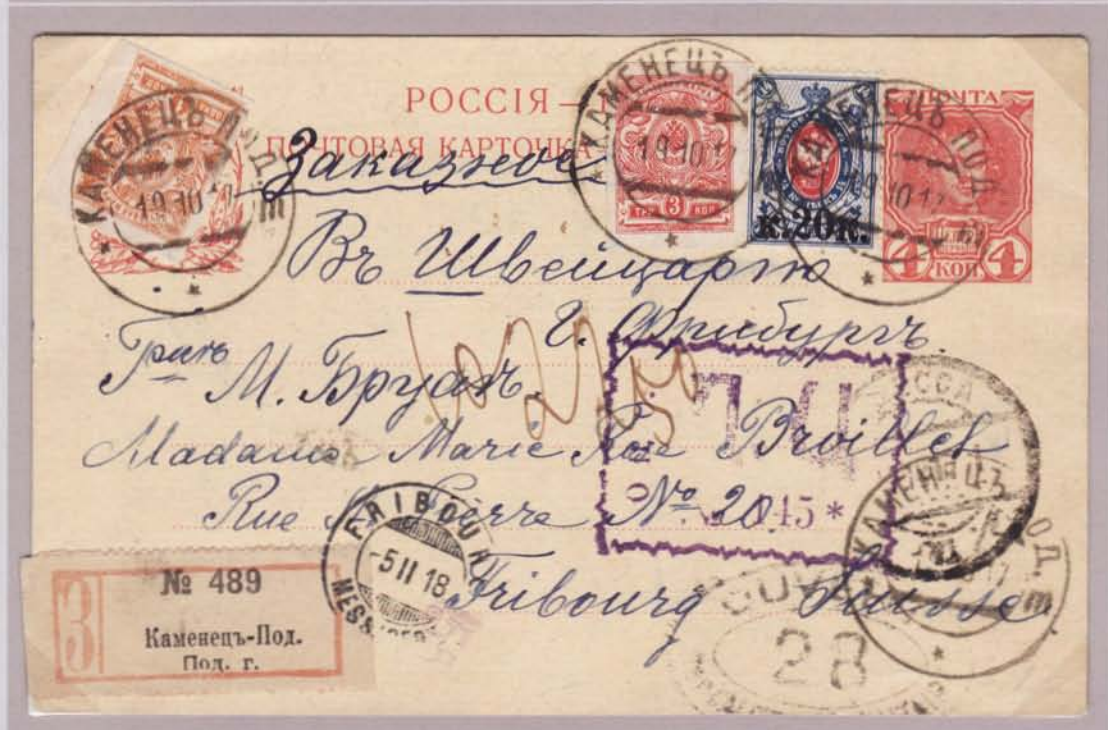 РОССІЯ
ПОЧТОВАЯ КАРТОЧКА
Заказное
КАМЕНЕЦЪ ПОД.
19 10 17
КАМЕНЕЦЪ
19 10 17
3 КОП
К. 20 К.
КАМЕНЕЦЪ ПОД.
19 10 17
ПОЧТА
4 КОП 4
Въ Швейцарію
г. Фрибургъ.
М. Бруаэ.
Madame Marie Rue Broillet
Rue St Pierre № 20
Fribourg Suisse
П Ц
45 *
КАМЕНЕЦЪ
FRIBOURG
-5 II 18
MESSAGER
28
З
№ 489
Каменецъ-Под.
Под. г.